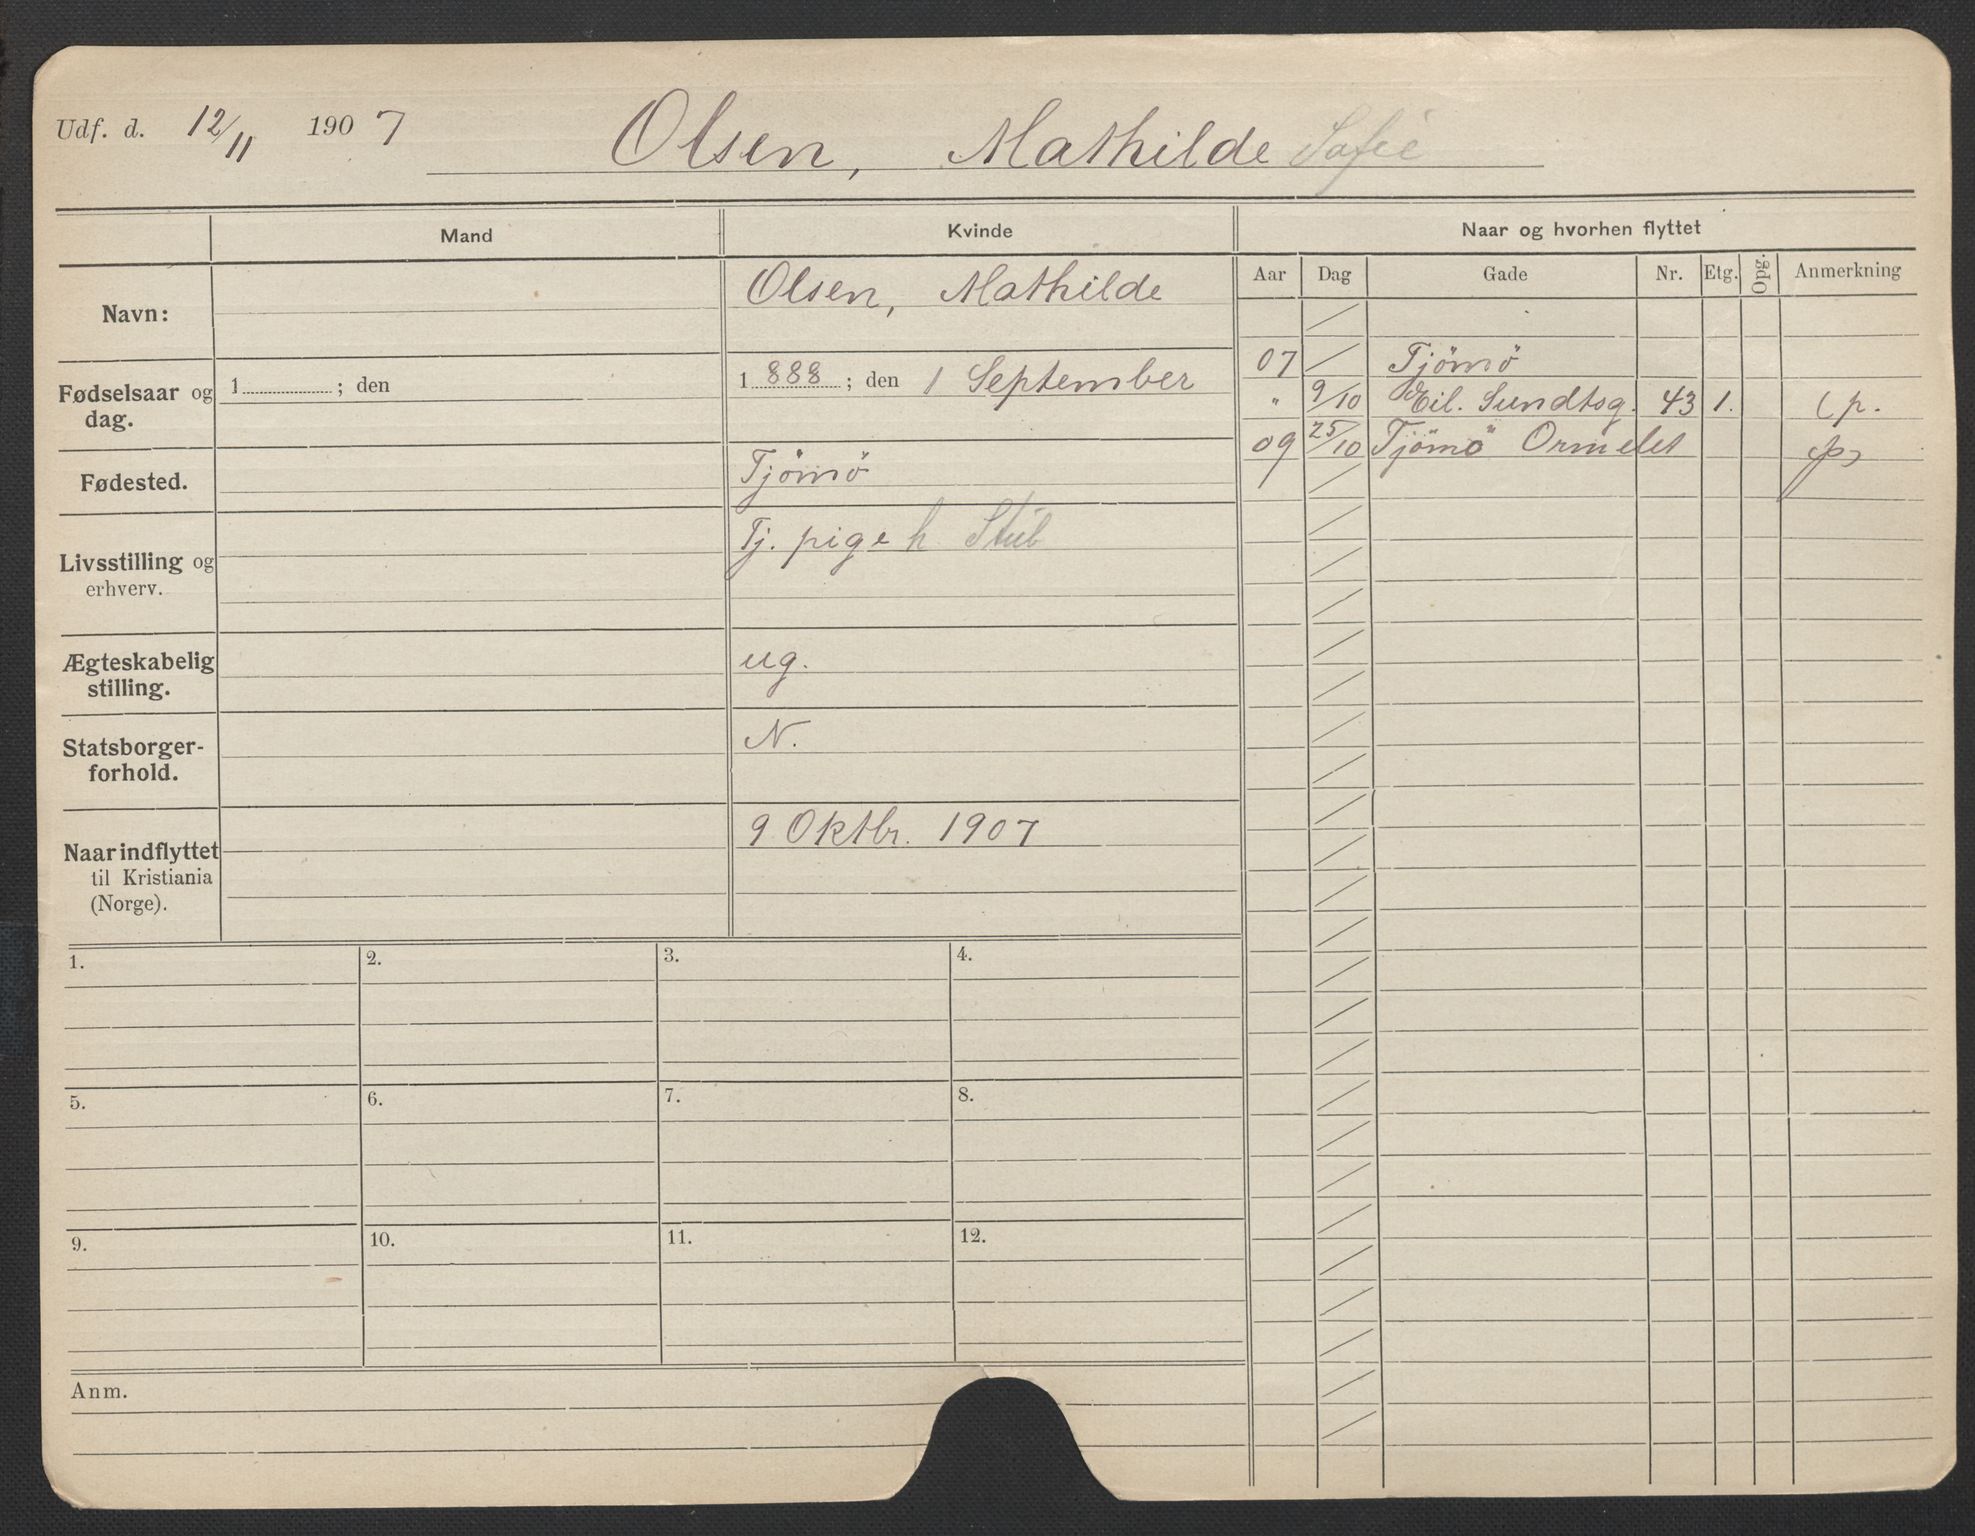 Udf. d. 12/11 1907 Olsen, Mathilde Sofie
Mand Kvinde Naar og hvorhen flyttet
Aar Dag Gade Nr. Etg. Opg. Anmerkning
Navn: Olsen, Mathilde
Fødselsaar og dag. 1 ; den 1888 ; den 1 September
Fødested. Tjömö
Livsstilling og erhverv. Tj. pige h Stub
Ægteskabelig stilling. ug.
Statsborgerforhold. N.
Naar indflyttet til Kristiania (Norge). 9 Oktbr. 1907
07 / Tjömö
" 9/10 Eil. Sundtsg. 43 1. (p.
09 25/10 Tjömö Ormelet (p)
1. 2. 3. 4.
5. 6. 7. 8.
9. 10. 11. 12.
Anm.